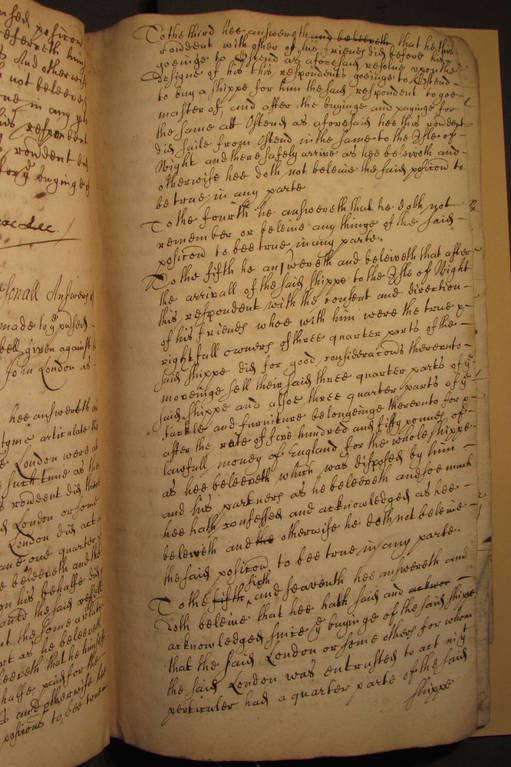 used posicon
referreth him
And otherwise
not beleeve
in any pte
his respon
rondent
buyinge of
Personall Answers
made to ye posed
bell given against
John London as
hee answereth
tyme articulate
London were
such tyme as the
rondent did
London or some
London did act
one quarter
beleeveth and the
on his behalfe did
the said respon
the some
as he beleeveth
beleeveth that he
halfe paid for the
and otherwise
posicons to bee true
To the third hee answereth and beleeveth that hee this
rondent with other of his friends did before his
goeinge to Ostend as aforesaid resolve upon the
designe of his this respondents goeinge to Ostend
to buy a shippe for him the said respondent to goe
master of, and after the buyinge and payinge for
the same att Ostend as aforesaid hee this rondent
did saile from Ostend in the same to the Isle of
Wight and there safely arrive as hee beleeveth and
otherwise hee doth not beleeve the said posicon to
be true in any parte
To the fourth he answereth that he doth not
remember or beleive any thinge of the said
posicon to bee true in any parte.
To the fifth he answereth and beleiveth that after
the arrivall of the said shippe to the Isle of Wight
this respondent with the consent and direction
of his friends whoe with him were the true &
rightfull owners of three quarter parts of the
said shippe did for good consideracons thereunto
moveinge sell their said three quarter parts of ye
said shippe and alsoe three quarter parts of ye
tackle and furniture belonginge thereunto for &
after the rate of five hundred and fifty pounds of
lawfull money of England for the whole shippe
as hee beleeveth which was disposed by him
and his partners as he beleeveth and soe much
hee hath confessed and acknowledged as hee
beleeveth and hee otherwise he doth not beleive
the said posicon to bee true in any parte.
To the fifth sixth and seaventh hee answereth and
doth beleive that hee hath said and
acknowledged since ye buyinge of the said shippe
that the said London or some others for whom
the said London was entrusted to act in ye
perticuler had a quarter parte of the said
shippe